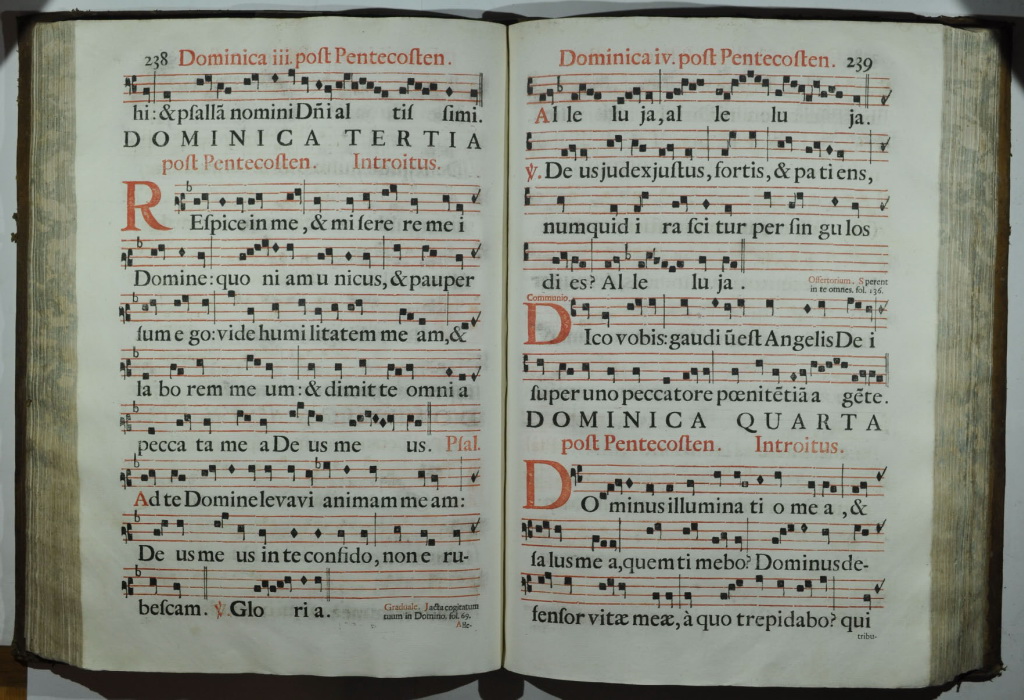 238 Dominica iii. poſt Pentecoſten.
hi: & pſallã nomini Dñi al tiſ ſimi.
DOMINICA TERTIA
poſt Pentecoſten. Introitus.
REſpice in me, & mi ſere re me i
Domine: quo ni am u nicus, & pauper
ſum e go: vide humi litatem me am, &
la bo rem me um: & dimit te omni a
pecca ta me a De us me us. Pſal.
Ad te Domine levavi animam me am:
De us me us in te confido, non e ru-
beſcam. ℣. Glo ri a.
Graduale. Jacta cogitatum
tuum in Domino. fol. 69.
Alle-
Dominica iv. poſt Pentecoſten. 239
Al le lu ja, al le lu ja.
℣. De us judex juſtus, fortis, & pa ti ens,
numquid i ra ſci tur per ſin gu los
di es? Al le lu ja.
Offertorium. Sperent
in te omnes. fol. 136.
Communio.
DIco vobis: gaudi ũ eſt Angelis De i
ſuper uno peccatore pœnitẽtiã a gẽte.
DOMINICA QUARTA
poſt Pentecoſten. Introitus.
DOminus illumina ti o me a, &
ſa lus me a, quem ti mebo? Dominus de-
fenſor vitæ meæ, à quo trepidabo? qui
tribu-